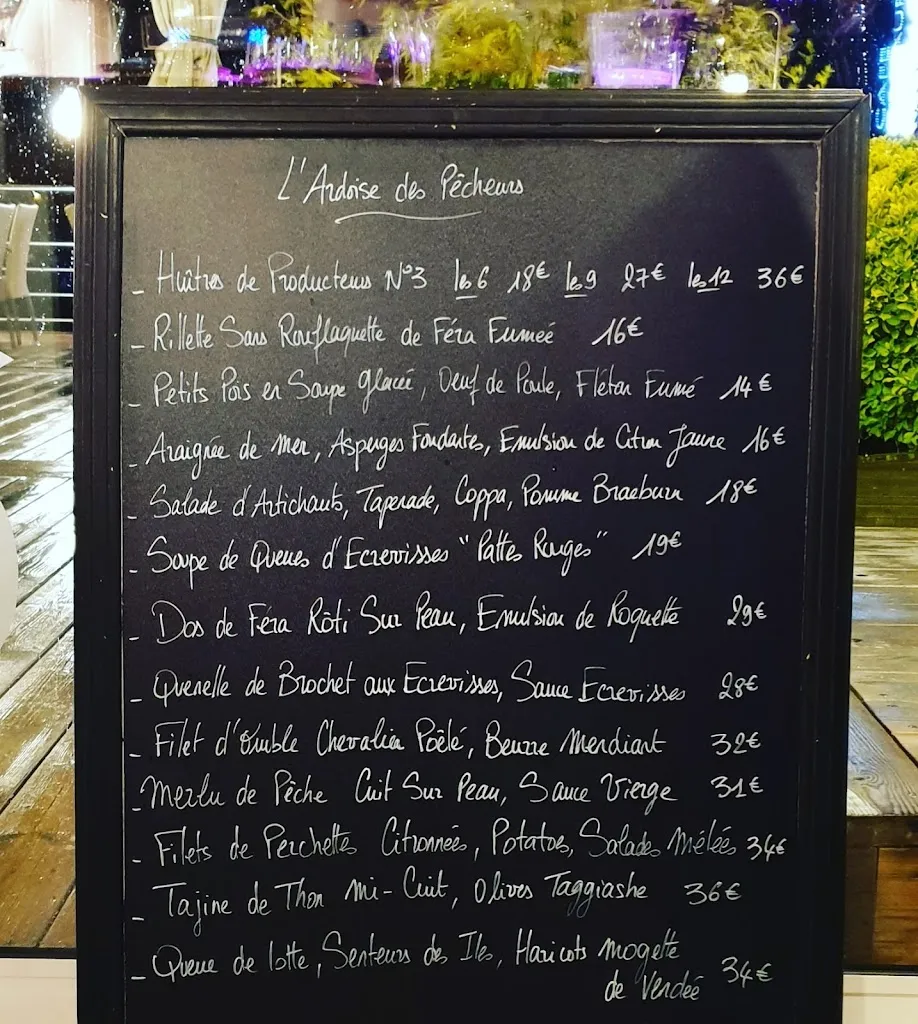 L'Ardoise des Pêcheurs
- Huîtres de Producteurs N°3 les 6 18€ les 9 27€ les 12 36€
- Rillette Sans Rouflaquette de Féra Fumeé 16€
- Petits Pois en Soupe glacée, Oeuf de Poule, Flétan Fumé 14€
- Araignée de mer, Asperges Fondantes, Emulsion de Citron Jaune 16€
- Salade d'Artichauts, Tapenade, Coppa, Pomme Braeburn 18€
- Soupe de Queues d'Ecrevisses "Pattes Rouges" 19€
- Dos de Féra Rôti Sur Peau, Emulsion de Roquette 29€
- Quenelle de Brochet aux Ecrevisses, Sauce Ecrevisses 28€
- Filet d'Omble Chevalier Poêlé, Beurre Mendiant 32€
- Merlu de Pêche Cuit Sur Peau, Sauce Vierge 31€
- Filets de Perchettes Citronnés, Potatos, Salades Mélées 34€
- Tajine de Thon Mi-Cuit, Olives Taggiashe 36€
- Queue de lotte, Senteurs des Iles, Haricots mogette
de Vendée 34€